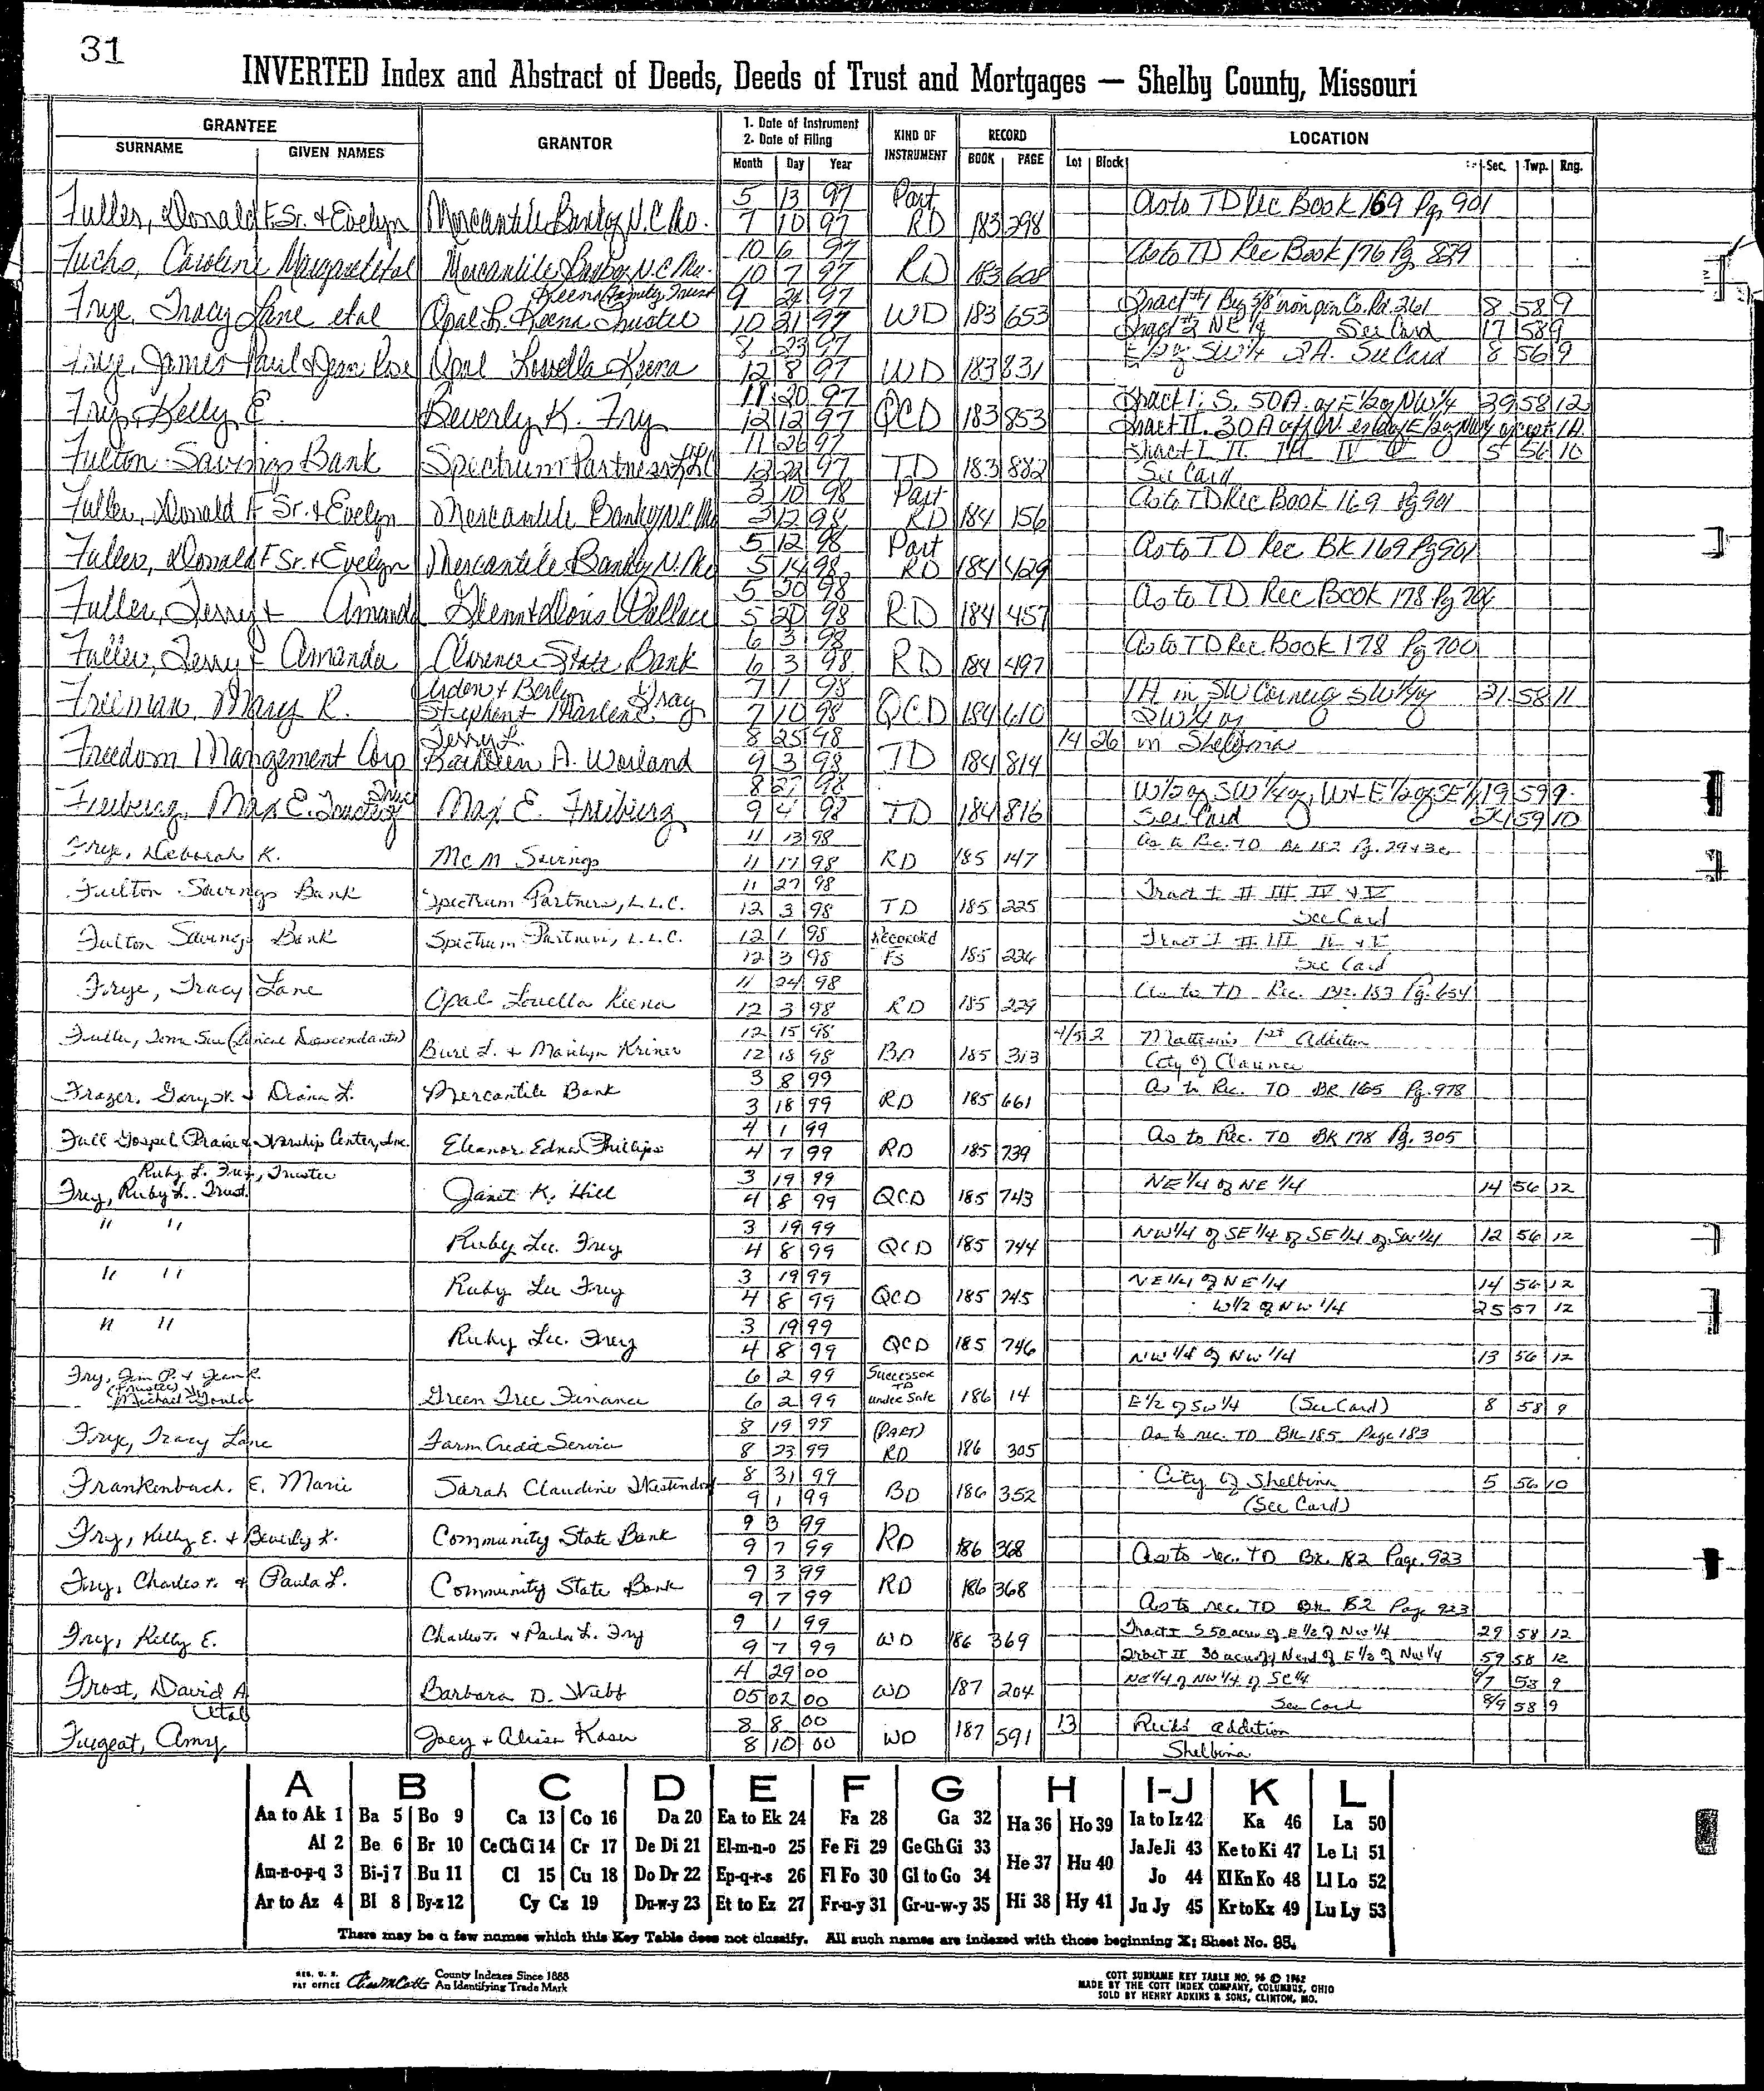 31
INVERTED Index and Abstract of Deeds, Deeds of Trust and Mortgages — Shelby County, Missouri
GRANTEE
SURNAME GIVEN NAMES
GRANTOR
1. Date of Instrument
2. Date of Filing
Month Day Year
KIND OF
INSTRUMENT
RECORD
BOOK PAGE
LOCATION
Lot Block Sec. Twp. Rng.
5 13 97 Part As to TD Rec Book 169 Pg 901
Fuller, Donald F. Sr. & Evelyn Mercantile Bank of N.C. Mo. 7 10 97 RD 183 298
10 6 97 As to TD Rec Book 176 Pg 829
Fuchs, Caroline Margaret etal Mercantile Bank of N.C. Mo. 10 7 97 RD 183 608
Keena Family Trust 9 24 97 Tract #1 Beg 5/8" iron pin Co. Rd. 8 58 9
Frye, Tracy Lane etal Opal L. Keena Trustee 10 21 97 WD 183 653 Tract #2 NE 1/4 See Card 17 58 9
8 23 97 E 1/2 of SW 1/4 2A. See Card 8 56 9
Frye, James Paul & Jean Rose Opal Louella Keena 12 8 97 WD 183 831
11 20 97 Tract I: S. 50 A. of E 1/2 of NW 1/4 29 58 12
Fry, Kelly E. Beverly K. Fry 12 12 97 QCD 183 853 Tract II. 30 A off N. end of E 1/2 of NW 1/4 except 1A.
11 26 97 Tract I II III IV V 5 56 10
Fulton Savings Bank Spectrum Partners LLC 12 22 97 TD 183 882 See Card
2 10 98 Part As to TD Rec Book 169 Pg 901
Fuller, Donald F Sr. & Evelyn Mercantile Bank of N.C. Mo 2 12 98 RD 184 156
5 12 98 Part As to TD Rec BK 169 Pg 901
Fuller, Donald F Sr. & Evelyn Mercantile Bank of N. Mo 5 14 98 RD 184 429
5 20 98 As to TD Rec Book 178 Pg 706
Fuller, Terry & Amanda Glenn & Doris Wallace 5 20 98 RD 184 457
6 3 98 As to TD Rec Book 178 Pg 700
Fuller, Terry & Amanda Clarence State Bank 6 3 98 RD 184 497
Arden & Berlyn Gray 7 1 98 1A in SW Corner of SW 1/4 of 21 58 11
Freeman, Mary R. Stephen & Marlene 7 10 98 QCD 184 610 SW 1/4 of
Terry L. 8 25 98 14 26 in Shelbina
Freedom Mangement Corp Kathleen A. Worland 9 3 98 TD 184 814
8 27 98 W 1/2 of SW 1/4 of, W & E 1/2 of SE 1/4 19 59 9
Freiberg, Max E. Trustee Max E. Freiberg 9 4 98 TD 184 816 See Card 24 59 10
11 13 98 As to Rec. TD Bk 182 Pg. 29 & 36
Frye, Deborah K. MCM Savings 11 17 98 RD 185 147
11 27 98 Tract I II III IV & V
Fulton Savings Bank Spectrum Partners, L.L.C. 12 3 98 TD 185 225 See Card
12 1 98 Recorded Tract I II III IV & V
Fulton Savings Bank Spectrum Partners, L.L.C. 12 3 98 FS 185 226 See Card
11 24 98 As to TD Rec. BK. 183 Pg. 654
Frye, Tracy Lane Opal Louella Keena 12 3 98 RD 185 229
12 15 98 4/5 2 1st Addition
Fuller, Toma Sue (Lineal Descendants) Burl L. & Marilyn Kriner 12 18 98 BD 185 313 City of Clarence
3 8 99 As to Rec. TD BK 165 Pg. 978
Frazer, Gary W. & Diana L. Mercantile Bank 3 18 99 RD 185 661
4 1 99 As to Rec. TD BK 178 Pg. 305
Full Gospel Praise & Worship Center, Inc. Eleanor Edna Phillips 4 7 99 RD 185 739
Ruby L. Frey, Trustee 3 19 99 NE 1/4 of NE 1/4 14 56 12
Frey, Ruby L. Trust Janet K. Hill 4 8 99 QCD 185 743
" " 3 19 99 NW 1/4 of SE 1/4 of SE 1/4 of SW 1/4 12 56 12
Ruby Lee Frey 4 8 99 QCD 185 744
" " 3 19 99 NE 1/4 of NE 1/4 14 56 12
Ruby Lee Frey 4 8 99 QCD 185 745 W 1/2 of NW 1/4 25 57 12
" " 3 19 99
Ruby Lee Frey 4 8 99 QCD 185 746 NW 1/4 of NW 1/4 13 56 12
Fry, Jim P. & Jean R. 6 2 99 Successor
(Trustee) TD
Michael Gould Green Tree Finance 6 2 99 under Sale 186 14 E 1/2 of SW 1/4 (See Card) 8 58 9
8 19 99 (PART) As to rec. TD BK 185 Page 183
Frye, Tracy Lane Farm Credit Service 8 23 99 RD 186 305
8 31 99 City of Shelbina 5 56 10
Frankenbach, E. Marie Sarah Claudine Westendorf 9 1 99 BD 186 352 (See Card)
9 3 99
Fry, Kelly E. & Beverly K. Community State Bank 9 7 99 RD 186 368 As to rec. TD BK. 182 Page. 923
9 3 99
Fry, Charles T. & Paula L. Community State Bank 9 7 99 RD 186 368 As to rec. TD BK 182 Page 923
9 1 99 Tract I S 50 acres of E 1/2 of NW 1/4 29 58 12
Fry, Kelly E. Charles T. & Paula L. Fry 9 7 99 WD 186 369 Tract II 30 acres of N end of E 1/2 of NW 1/4 59 58 12
4 29 00 NE 1/4 of NW 1/4 of SE 1/4 58 9
Frost, David A Barbara D. Webb 05 02 00 WD 187 204 See Card 8/9 58 9
etal
8 8 00 13 Reids addition
Fugeat, Amy Joey & Alisa Kaser 8 10 00 WD 187 591 Shelbina
A B C D E F G H I-J K L
Aa to Ak 1 Ba 5 Bo 9 Ca 13 Co 16 Da 20 Ea to Ek 24 Fa 28 Ga 32 Ha 36 Ho 39 Ia to Iz 42 Ka 46 La 50
Al 2 Be 6 Br 10 Ce Ch Ci 14 Cr 17 De Di 21 El-m-n-o 25 Fe Fi 29 Ge Gh Gi 33 He 37 Hu 40 Ja Je Ji 43 Ke to Ki 47 Le Li 51
Am-n-o-p-q 3 Bi-j 7 Bu 11 Cl 15 Cu 18 Do Dr 22 Ep-q-r-s 26 Fl Fo 30 Gl to Go 34 Jo 44 Kl Kn Ko 48 Ll Lo 52
Ar to Az 4 Bl 8 By-z 12 Cy Cz 19 Du-w-y 23 Et to Ez 27 Fr-u-y 31 Gr-u-w-y 35 Hi 38 Hy 41 Ju Jy 45 Kr to Kz 49 Lu Ly 53
There may be a few names which this Key Table does not classify. All such names are indexed with those beginning X; Sheet No. 95.
REG. U. S. PAT OFFICE County Indexes Since 1888
An Identifying Trade Mark
COTT SURNAME KEY TABLE NO. 96 © 1962
MADE BY THE COTT INDEX COMPANY, COLUMBUS, OHIO
SOLD BY HENRY ADKINS & SONS, CLINTON, MO.